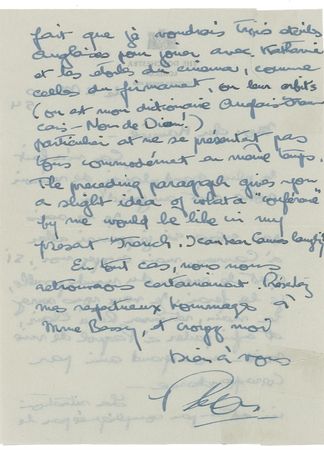 fait que je voudrais trois étoiles
anglaises pour jouer avec Katharine
et les étoiles du cinema, comme
celles du firmament, on leur orbits
(on est mon dictionaire Anglais-Fran
cais - Nom de Dieu!)
particulier et ne se présentent pas
tous commodément au même temps.
The preceding paragraph gives you
a slight idea of what a "conférence"
by me would be like in my
present French. I can hear Camus laugh
En tout cas, nous nous
retrouvons certainement. Présentez
mes respectueux hommages à
Mme Bessy, et croyez moi
bien à vous